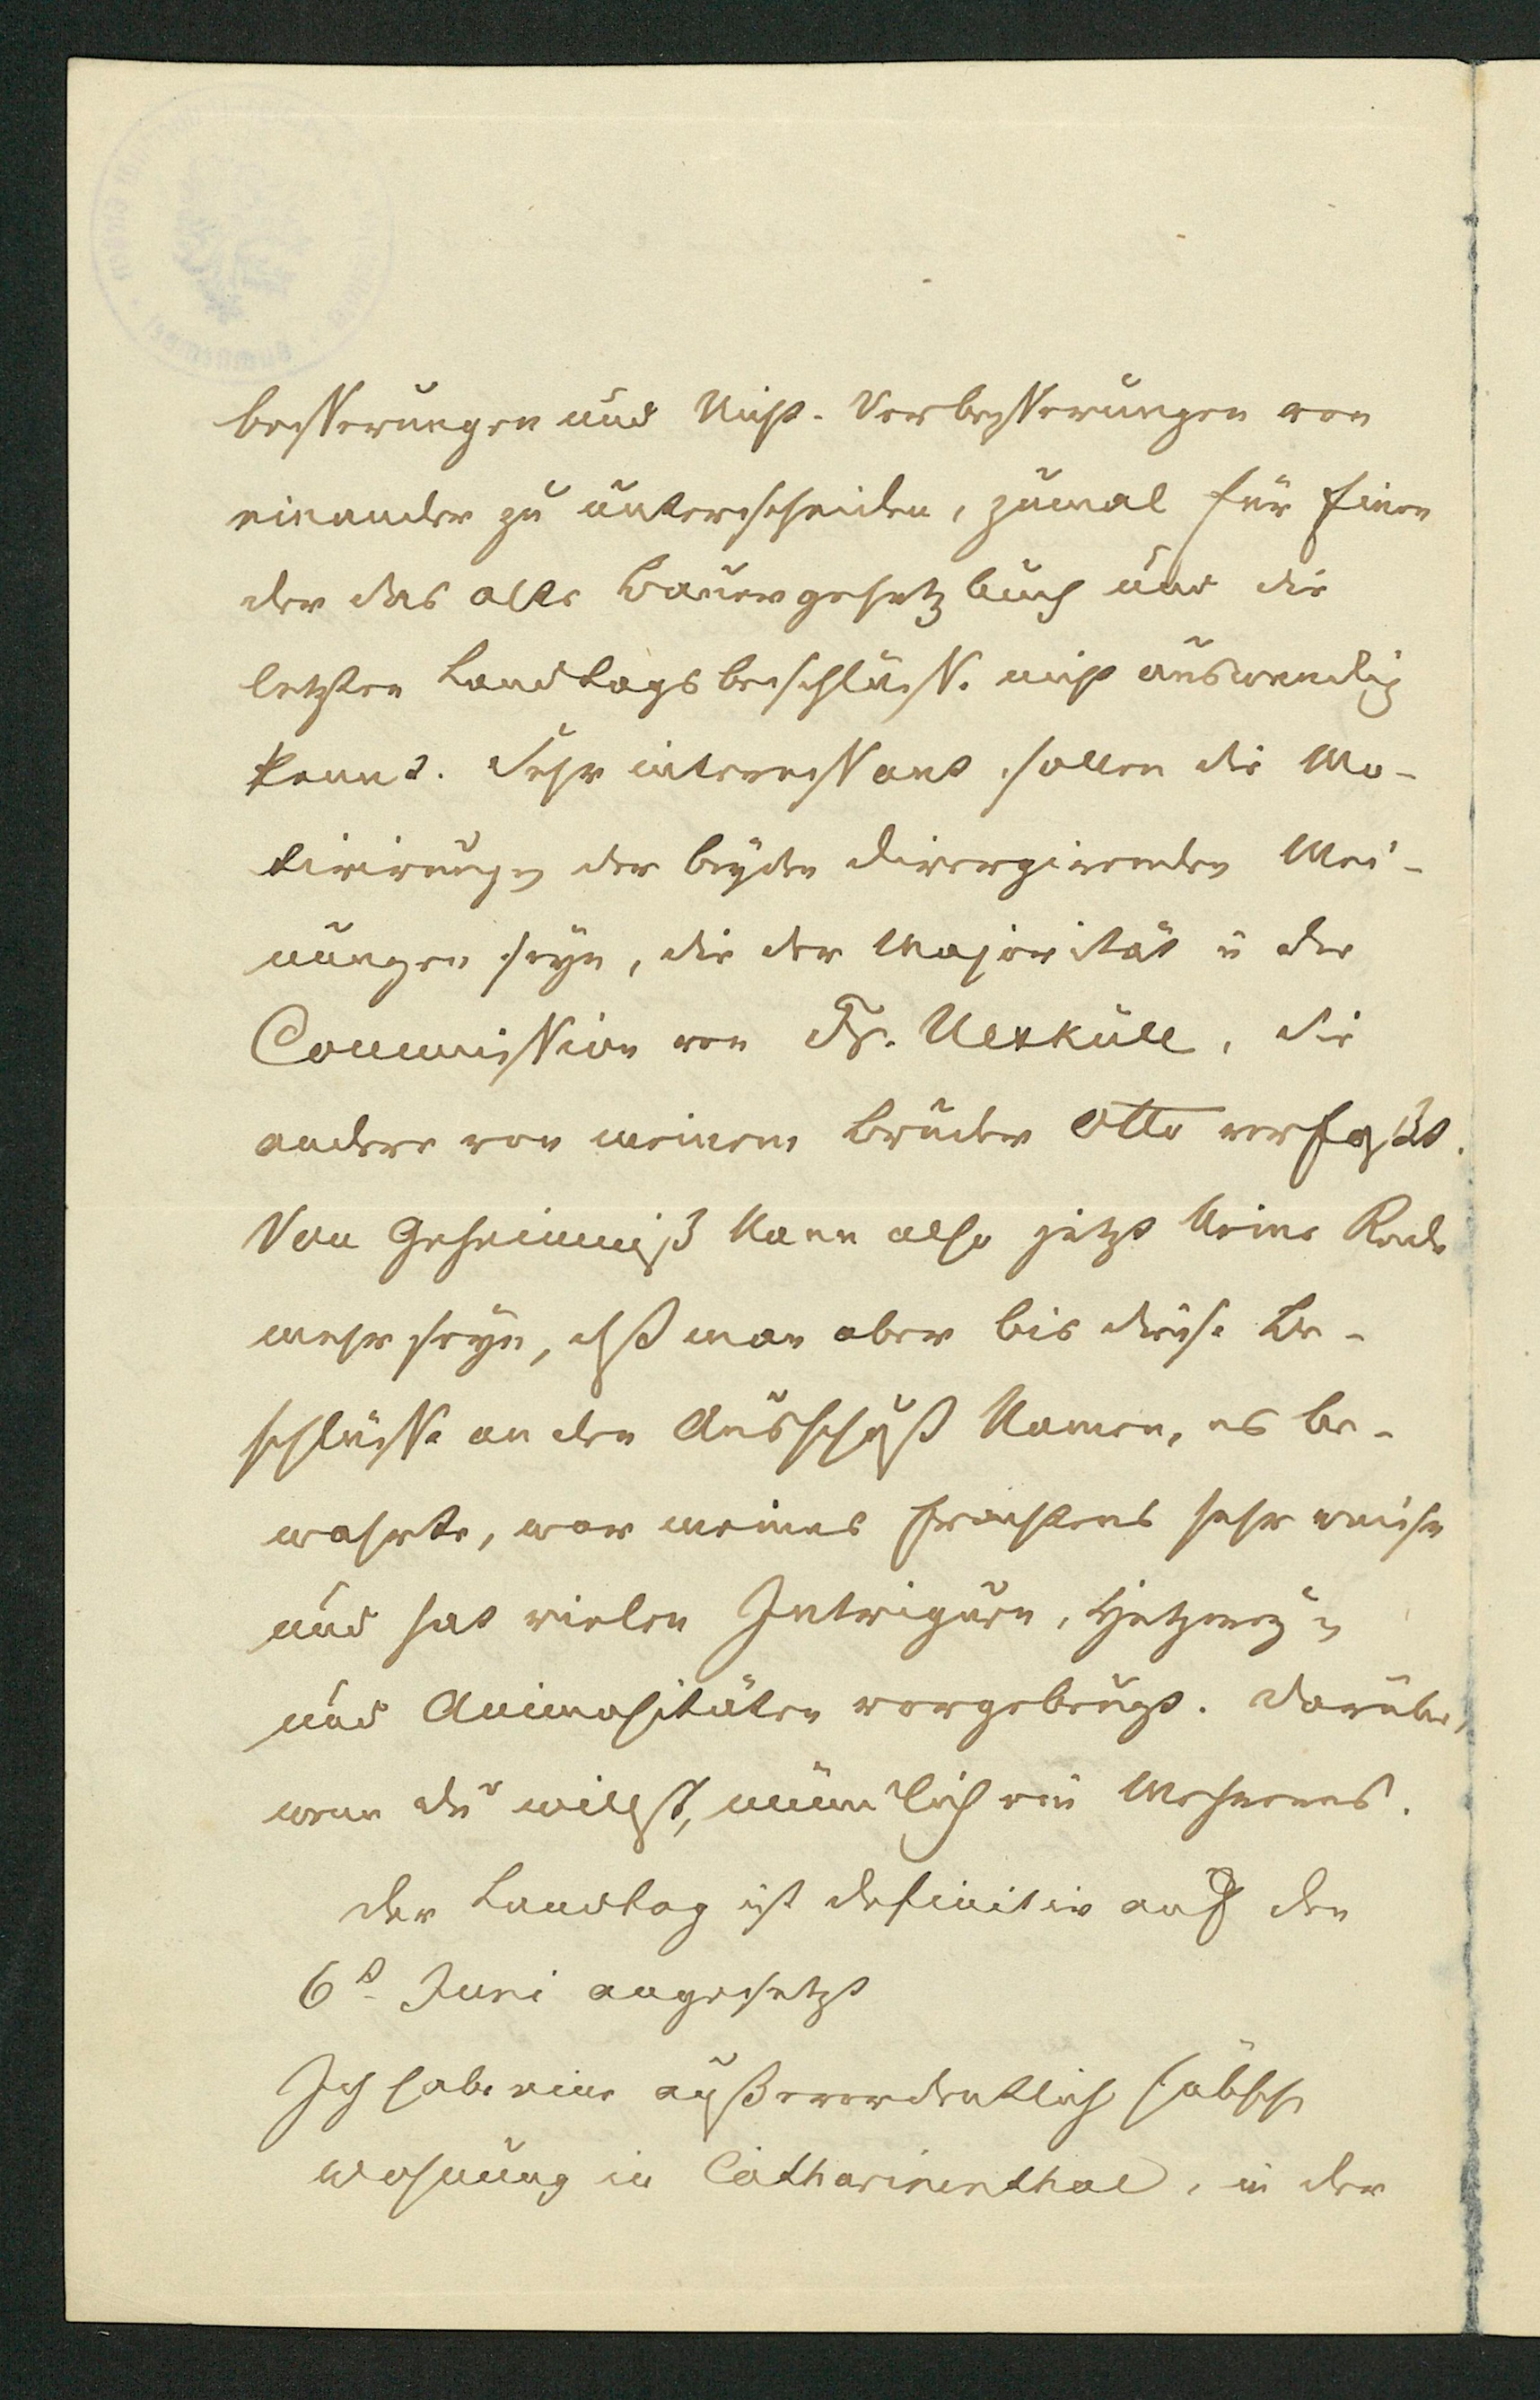 besserungen und Nicht-Verbesserungen von
einander zu unterscheiden, zumal für Einen
der das alte Bauergesetzbuch und die
letzten Landtagsbeschlüsse nicht auswendig
kennt. Sehr interessant sollen die Mo-
tivirungen der beyden divergirenden Mei-
nungen seyn, die der Majorität in der
Commission von Fr. Uexküll, die
andere von meinem Bruder Otto verfaßt.
Von Geheimniß kann also jetzt keine Rede
mehr seyn, daß man aber bis diese Be-
schlüsse an den Ausschuß kamen, es be-
wahrte, war meines Erachtens sehr weise
und hat vielen Intriguen, Hetzereyen
und Animositäten vorgebeugt. Darüber,
wenn du willst, mündlich ein Mehreres.
Der Landtag ist definitiv auf den
6t Juni angesetzt
Ich habe eine außerordentlich hübsche
Wohnung in Catharinenthal, in der